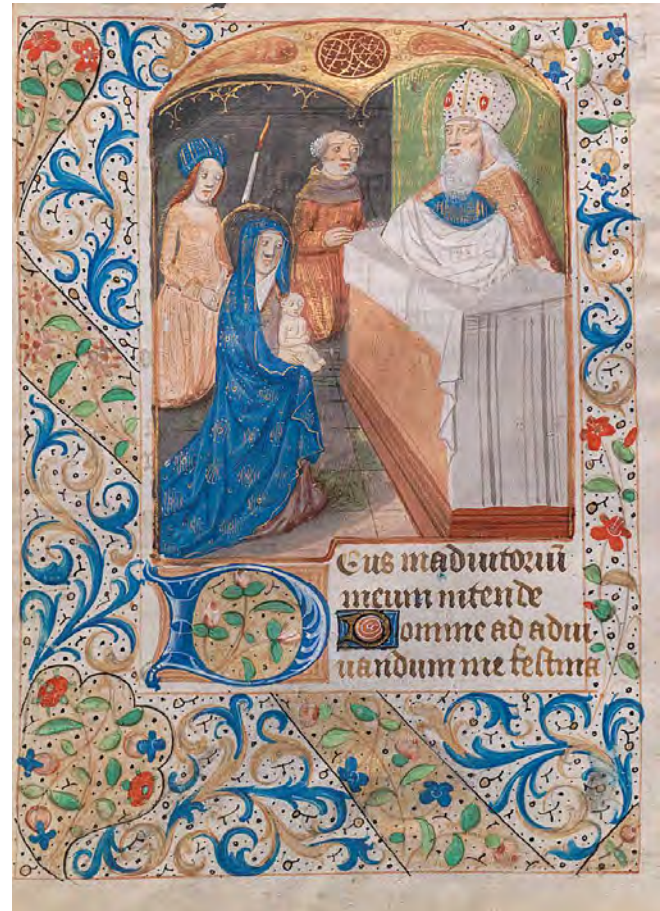 Deus in adiutoriū
meum intende
Domine ad adiu
uandum me festina